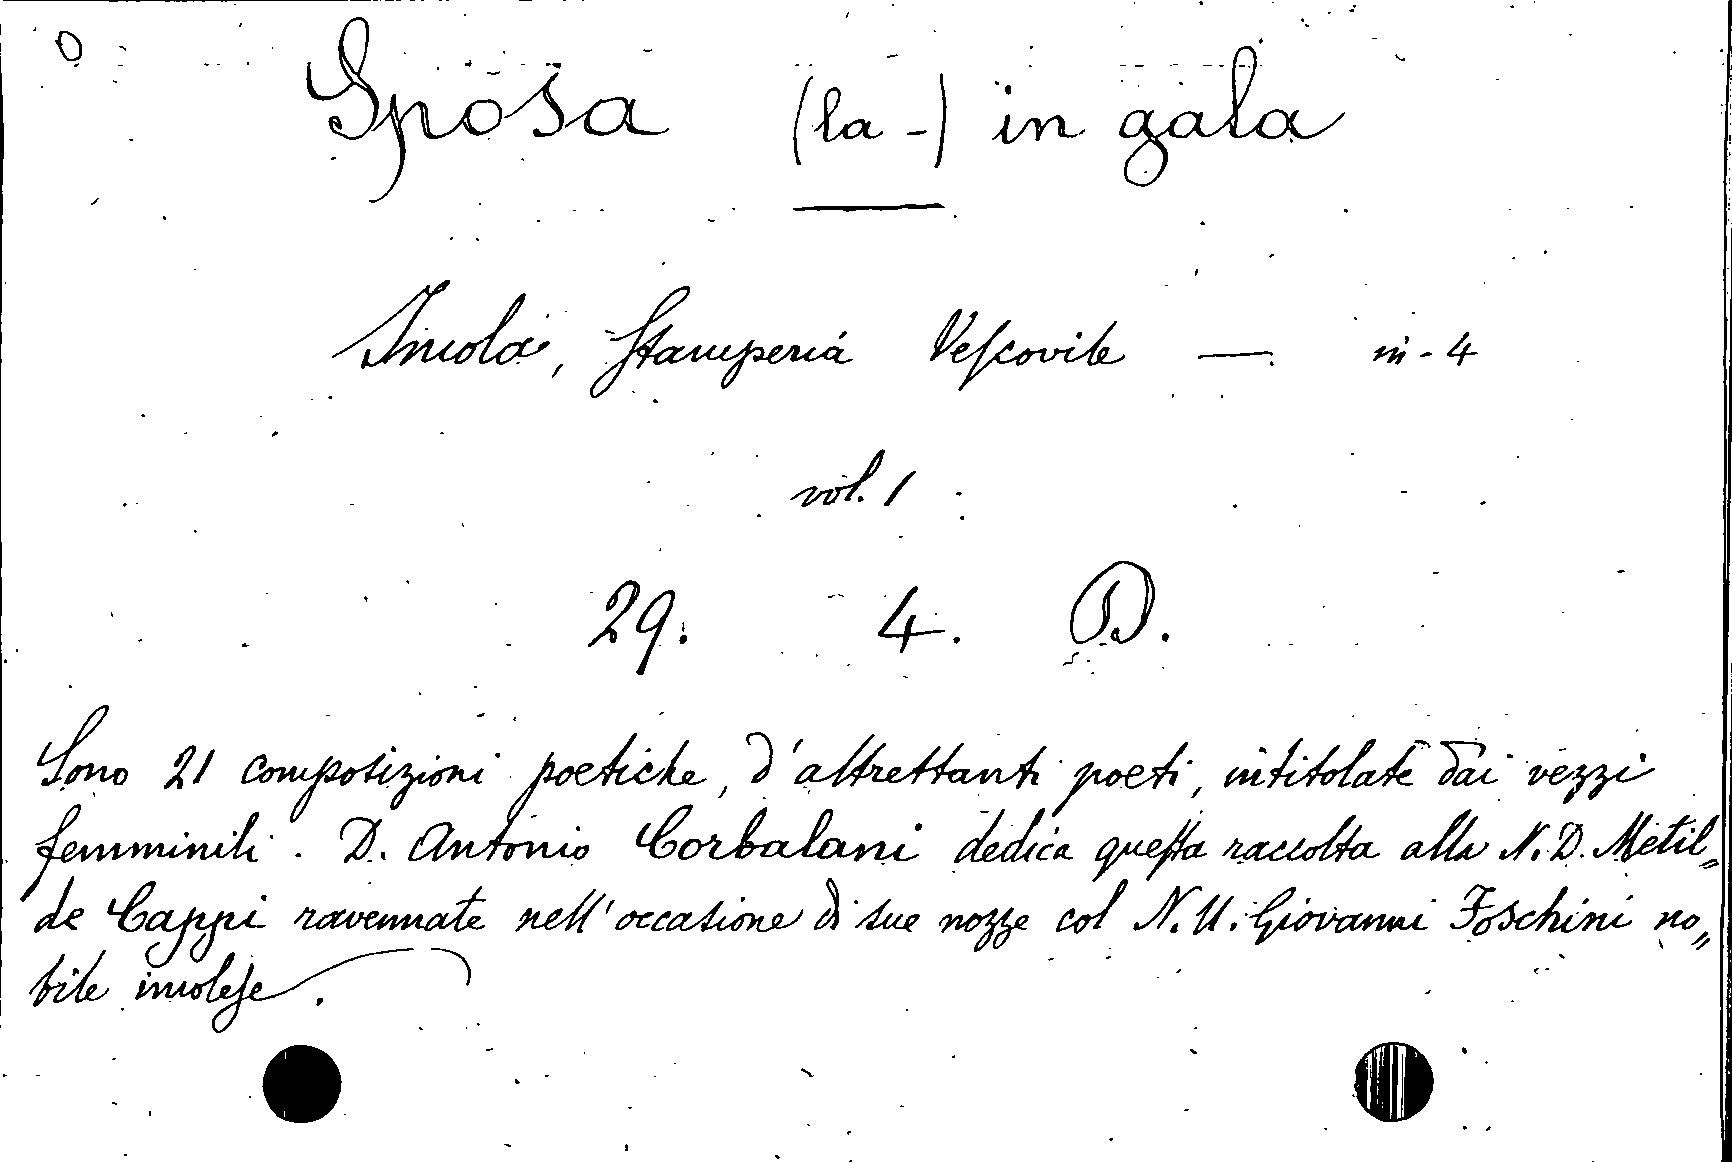 O
Sposa (la -) in gala
Imola, Stamperia Vescovile — in-4
vol. 1
29. 4. D.
Sono 21 composizioni poetiche, d'altrettanti poeti, intitolate dai vezzi
femminili. D. Antonio Corbalani dedica questa raccolta alla N. D. Metil„
de Cappi ravennate nell'occasione di sue nozze col N. U. Giovanni Foschini no„
bile imolese.